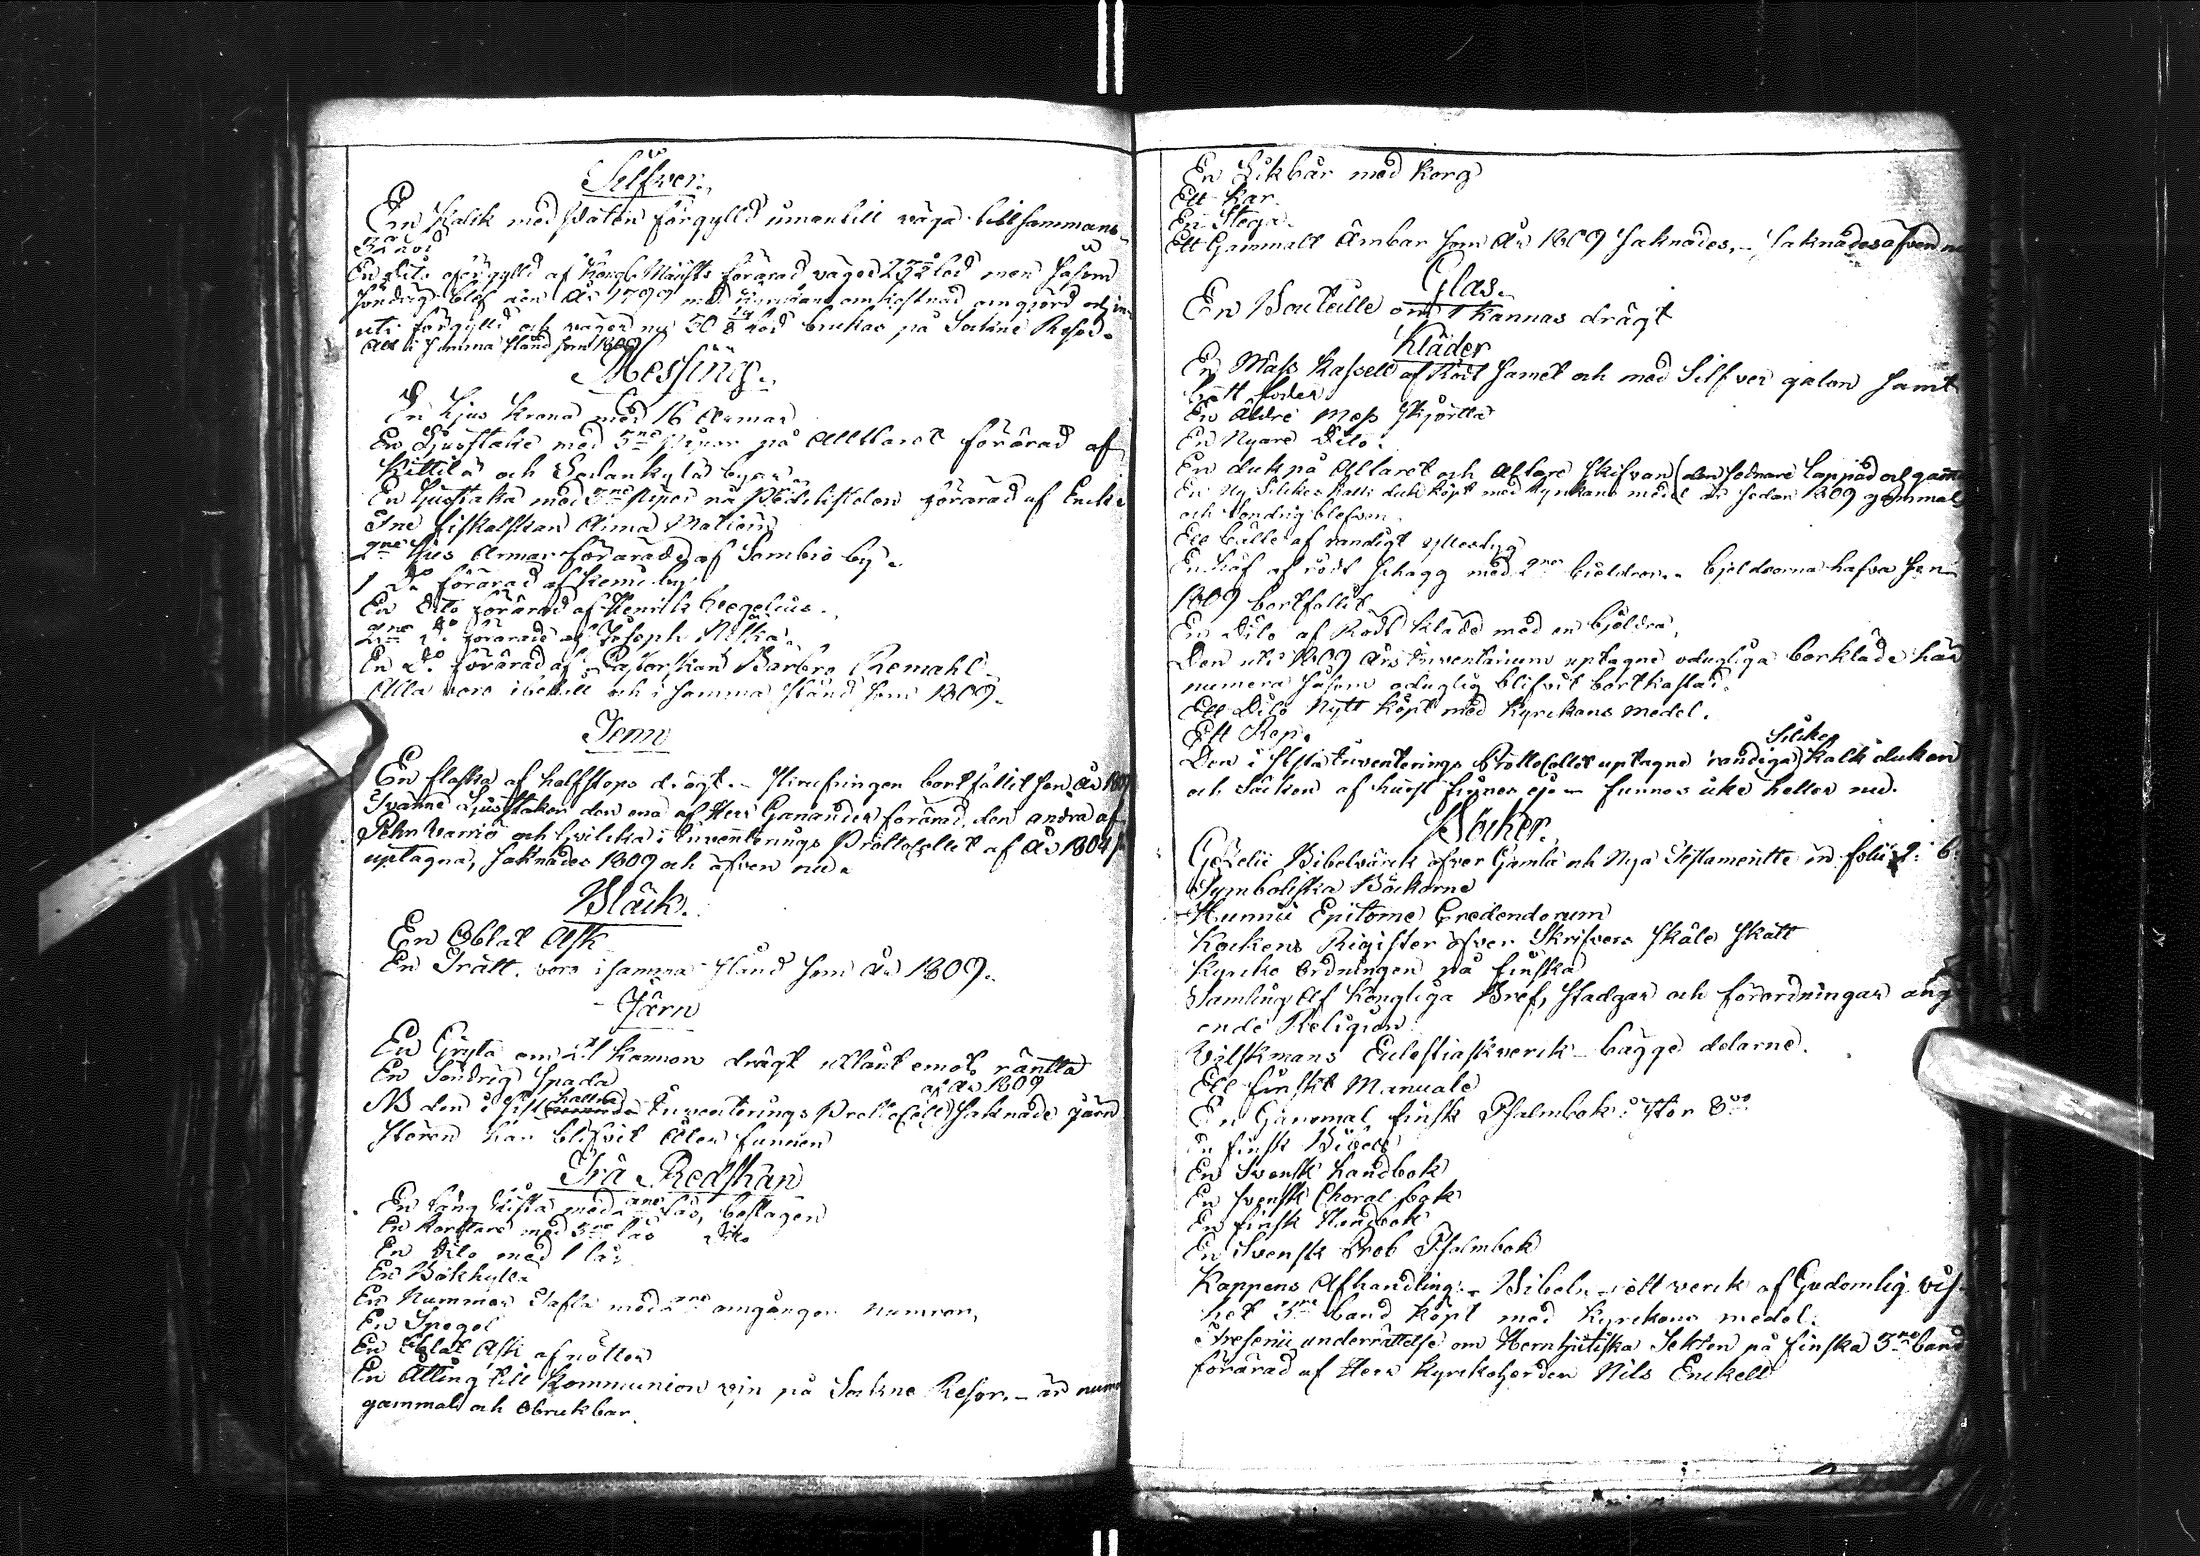 Silfwer.
En Kalk med Paten förgylld innantill väga tillsammans
32 lod
En dito oförgylld af Kongl. Maij:ts förärad väger 23 lod men såsom
söndrig blef den År 1799 med Kyrckans omkostnad omgiord och in
uti förgylld och väger nu 50 lod brukas på Sockne Resor.
Allt i samma stånd som 1809
Messing.
En Ljus Krona med 16 Armar
En Ljusstake med 3ne Pipor på Alltaret förärad af
Kittilä och Sodankylä byar.
En Ljusstaka med Piper på Predikstolen förärad af Encke
Fiskalskan Anna
2ne Ljus Armar förärade af Sombio by.
1 Do förärad af Kemi by
En Dito förärad af Henrik Hegelius.
2ne Do förärade af Joseph
En Do förärad af Pastorskan Barbro Remahl
Alla voro i behåll och i samma stånd som 1809.
Tenn
En flaska af halfstops drägt. - Skrufringen bortfallit sen År 1809
Tvänne Ljusstakar den ena af Herr Ganander förärad, den andra af
Pehr och hvilcka i Inventerings Protocollet af År 1804
uptagna, saknades 1809 och äfven nu.
Bläck.
En Oblat Ask
En Tratt. voro i samma stånd som År 1809.
Järn
En Gryta om 2 Kannors drägt utlånt emot räntta
En Söndrig Spada
af År 1809
NB den i sist hållne Inventerings Protocoll saknade järn
Stören har blifvit åter funnen
Trä Redskap
En lång Kista med 2ne lås, beslagen
En kortare med 3ne lås Dito
En Dito med 1 lås
En Bokhylla
En Nummer Tafla med 2ne omgångor numror.
En Spegel
En Oblat Ask af rötter
En Åtting till Kommunion vin på Sockne Resor. - är numera
gammal och obrukbar.
En Likbår med Korg
Ett Kar.
En Stega.
Ett Gammalt Ämbar som År 1809 saknades, - saknades äfven nu
Glas.
En Bouteille om 1 Kannas drägt
Kläder
En Mäss Kassell af Rödt samet och med Silfver galon samt
foder
En Äldre Mess Skjortta
En Nyare Dito.
En duk på Altaret och Altare Skifvan (den sednare lappad och gammal
En Ny Silckes Kalk duk köpt med Kyrckans medel är sedan 1809 gammal
och söndrig blefven.
Ett af randigt yllestyg
En Håf af rödt schagg med 2ne bjeldror. - bjeldrorna hafva sen
1809 bortfallit
En Dito af Rödt Kläde med en bjeldra,
Den uti 1809 års Inventarium uptagne odugliga bårkläde har
numera såsom oduglig blifvit bortkastad.
Ett Dito Nytt köpt med Kyrckans medel.
Ett Rep.
Silckes
Den i sista Inventerings Protocollet uptagne randiga Kalk duken
och Säcken af finnes ej - funnos icke heller nu.
Böcker.
Gezelii Bibelwärck öfver Gamla och Nya Testamentte in folii 2: b.
Symboliska Böckerne
Hunnii Epitome Credendorum
Kockens Rigister öfver Skrifvers Skåle Skatt
Kyrcko Ordningen på finska
Samling af Kongliga Bref, Stadgar och förordningar ang
ende Religion
Wilskmans Eclesiastikverck bägge delarne.
Ett finskt Manuale
En Gammal finsk Psalmbok i stor 8vo
En finsk Bibel
En Svensk Handbok
En svensk Choral bok
En finsk Handbok
En Svensk Prob Psalmbok
Kappens Afhandling: - Bibeln ett verck af Gudomlig vis-
het 3ne band köpt med Kyrckans medel.
Fresenii underrättelse om Hernhutiska Sekten på finska 3ne band
förärad af Herr Kyrckoherden Nils Enckell